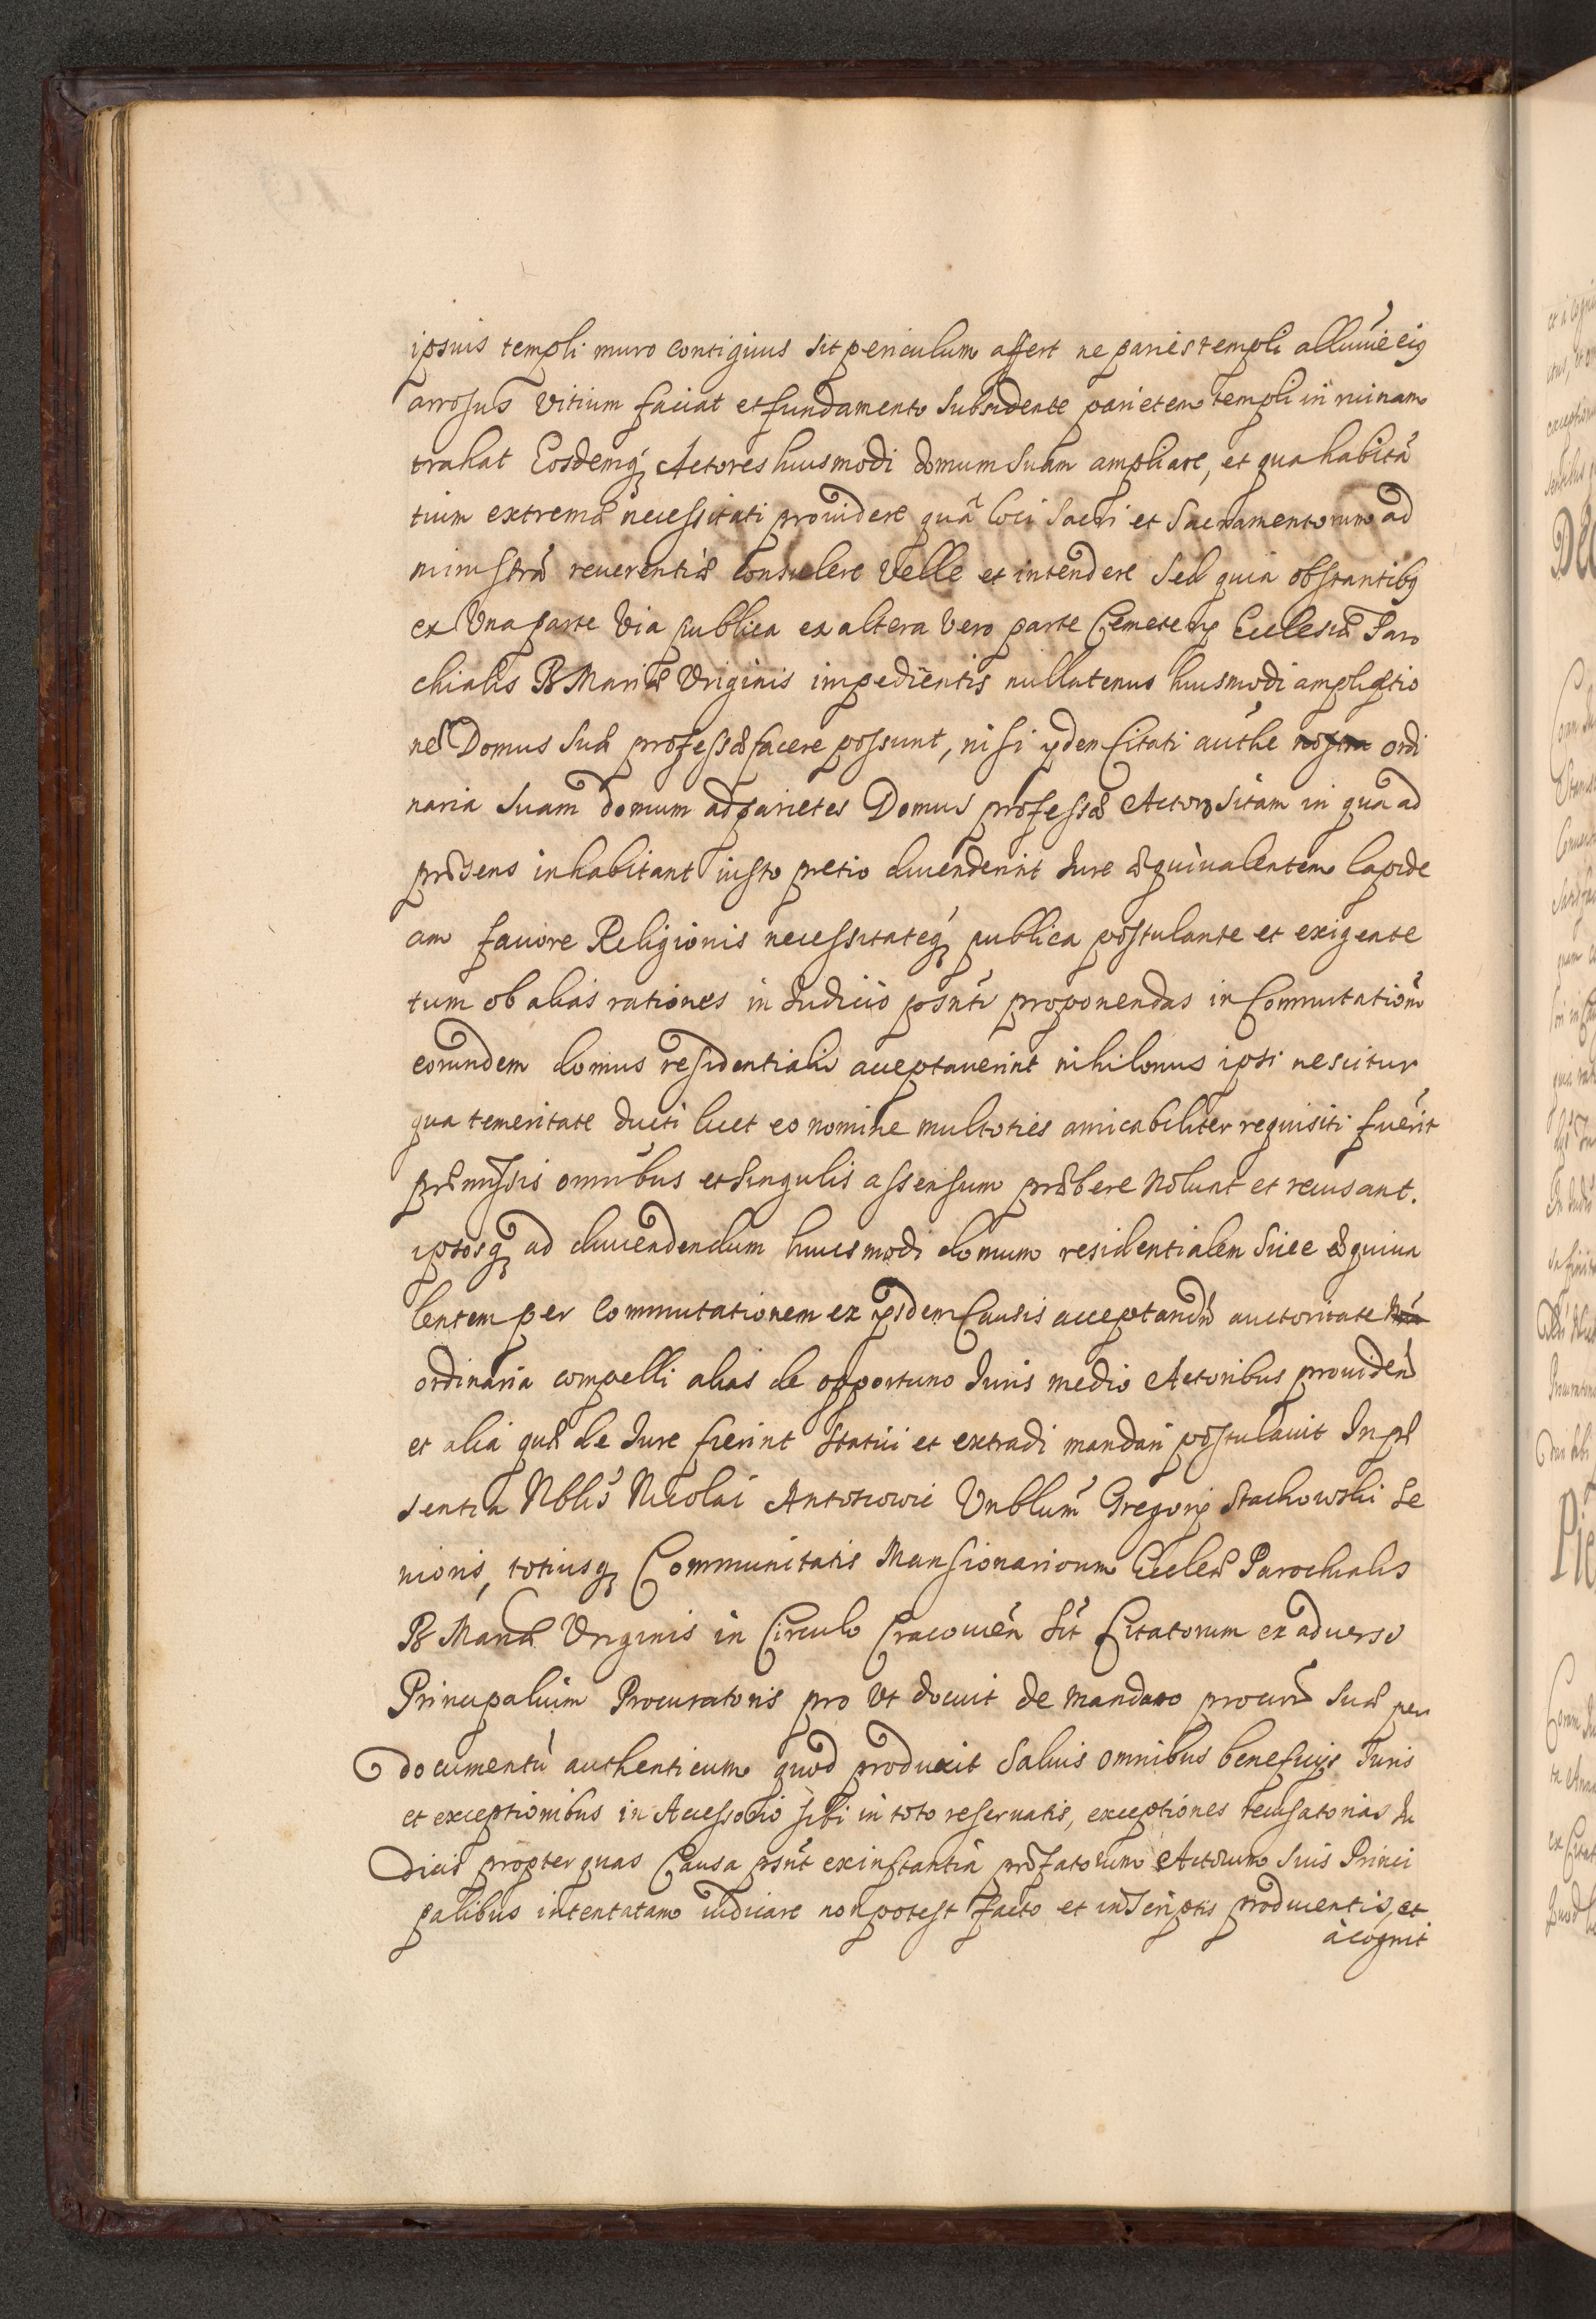 ipsius templi muro contiguus sit periculum affert ne paries templi alluvie eiꝗ
arrosus vitium faciat et fundamento subsidente parietem templi in ruinam
trahat Eosdemꝗ Actores huiusmodi domum suam ampliare, et qua habitā
tium extremæ necessitati prouidere quā loci sacri et Sacramentorum ad
ministræ reuerentiæ consulere velle et intendere Sed quia obstantibꝗ
ex vna parte via publica ex altera vero parte Cemeterij Ecclesiæ Paro
chialis B Mariæ Virginis impedientis nullatenus huiusmodi amplatio
nē Domus suæ professæ facere possunt, nisi ijdem Citati authē nostra ordi
naria suam domum ad parietes Domus professæ Actorꝝ sitam in qua ad
præsens inhabitant iusto pretio divenderint Iure æquiualentem lapide
am fauore Religionis necessitateꝗ publica postulante et exigente
tum ob alias rationes in Iudicio psnti proponendas in Commutationē
eorundem domus residentialis acceptauerint nihilomus ipsi nescitur
qua temeritate ducti licet eo nomine multoties amicabiliter requisiti fuerīt
præmissis omnibus et singulis assensum præbere nolunt et recusant.
ipsosꝗ ad divendendum huiusmodi domum residentialem siue æquiua
lentem per Commutationem ex ijsdem Causis acceptandā auctoritate nrā
ordinaria compelli alias de opportuno Iuris medio Actoribus prouiderī
et alia quæ de Iure fierint statui et extradi mandari postulauit In præ
sentia Nblis Nicolai Antoniowic Vnblum Gregorij Stachowski Se
nioris, totiusꝗ Communitatis Mansionariorum Ecclesiæ Parochialis
B Mariæ Virginis in Circulo Cracouien̄ Sit Citatorum ex aduerso
Principalium Procuratoris pro vt docuit de mandato procuræ suæ per
documentū authenticum quod produxit saluis omnibus beneficijs Iuris
et exceptionibus in Accessorio sibi in toto reseruatis, exceptiones recusatorias Iu
dicis propter quas Causa psnt ex instantia præfatorum Actorum suis Princi
palibus intentatam iudicare non potest facto et in Scriptis producentis, et
à cognit